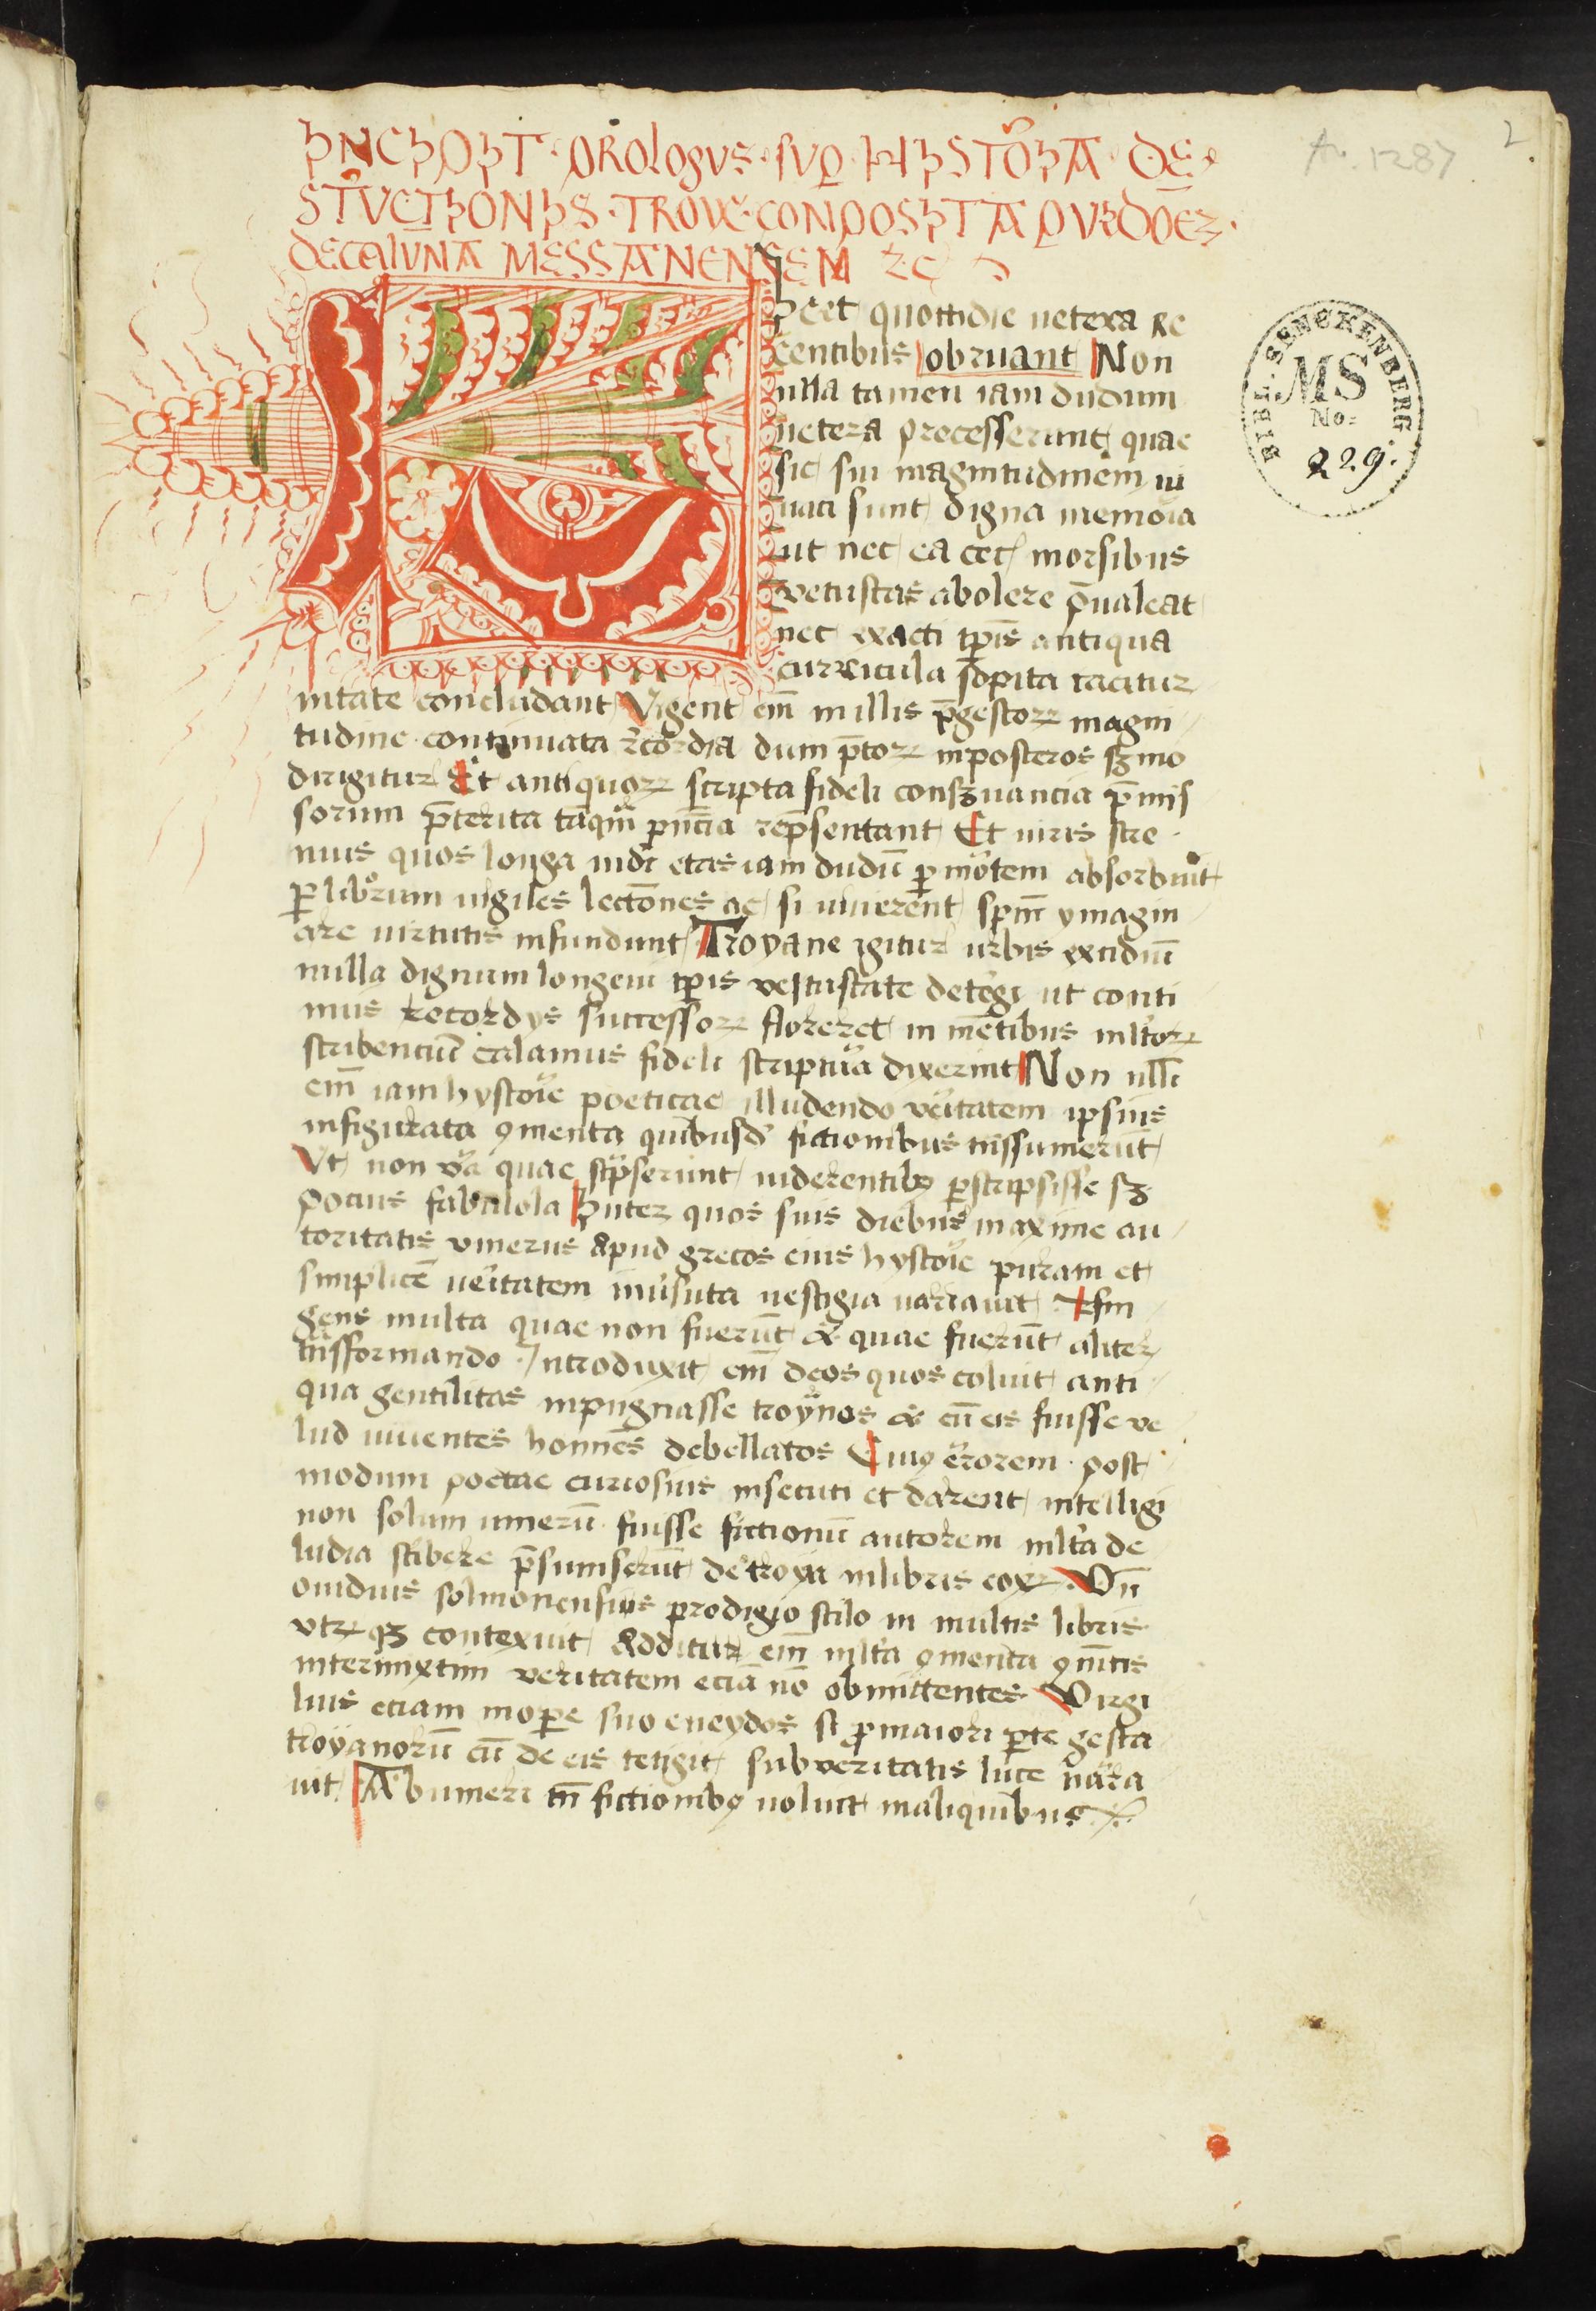 INCIPIT · PROLOGUS · SUP HISTORIA · DE
STRUCTIONIS · TROYE · CONPOSITA P IUDICEM ·
DE COLUNA MESSANENSEM
2.
Ar. 1287
BIBL. SENCKENBERG.
MS
No:
229.
Licet quottidie vetera re
centibus obruant Non
nulla tamen iam dudum
vetera precesserunt quae
sic sui magnitudinem vi
vaci sunt digna memoia
ut nec ea cec morsibus
vetustas abolere p̄valeat
nec exacti tp̄is antiqua
curricula sopita tacitur
nitate concludant Vigent em̄ in illis p̄ gestoꝝ magni
tudine continuata r̄cordia dum p̄toꝝ in posteros sermo
dirigitur Et antiquoꝝ scripta fideli conservancia p̄mis
sorum p̄terita tāqm̄ pn̄cia rep̄sentant Et viris stre
nuis quos longa mdī etas iam dudū p mōtem absorbuit
ꝑ librorum vigiles lectōnes ac si viverent spm̄ ymagin
are virtutis infundunt Troyane igitur urbis excidiū
nulla dignum longevi tp̄is vestustate detēgi ut conti
nuis recordys successoꝝ floreret in mētibus mltōꝝ
scribenciū calamus fideli scriptūa dixerint Non ulli
em̄ iam hystoīe poeticae illudendo vēitatem ipsius
in figurata ꝯmenta quibusdā fictionibus tn̄ssumerūt
Ut non v̄a quae scp̄serunt viderentibꝰ pscripsisse sꝫ
pocius fabulosa Inter quos suis diebus maxime au
toritatis umerus apud grecos eius hystoīe puram et
simplicē vēitatem in vēsuta vestigia variavit Efin
gens multa quae non fuerūt & quae fuerūt aliter
tn̄sformando Introduxit em̄ deos quos coluit anti
qua gentilitas inpugnasse troyn̄os & cū eis fuisse ve
lud viventes homines debellatos Cuiꝰ ērorem post
modum poetae curiosius insecuti et darent intelligi
non solum umerū fuisse fictionū autorem mlta de
ludia scibere p̄sumserūt de troya in libris eoꝝ Un̄
ovidius solmonensius prodigio stilo in multis libris
utꝝqꝫ contexuit Additur em̄ mlta ꝯmenta ꝯmitis
interinixtim veritatem eciā nō obmittentes Virgi
lius etiam in ope suo eneydos si ꝓ maiori pte gesta
troyanorū cū de eis tetigit sub veritatis luce nāra
vit Ab umeri tn̄ fictionibꝰ voluit in aliquibus